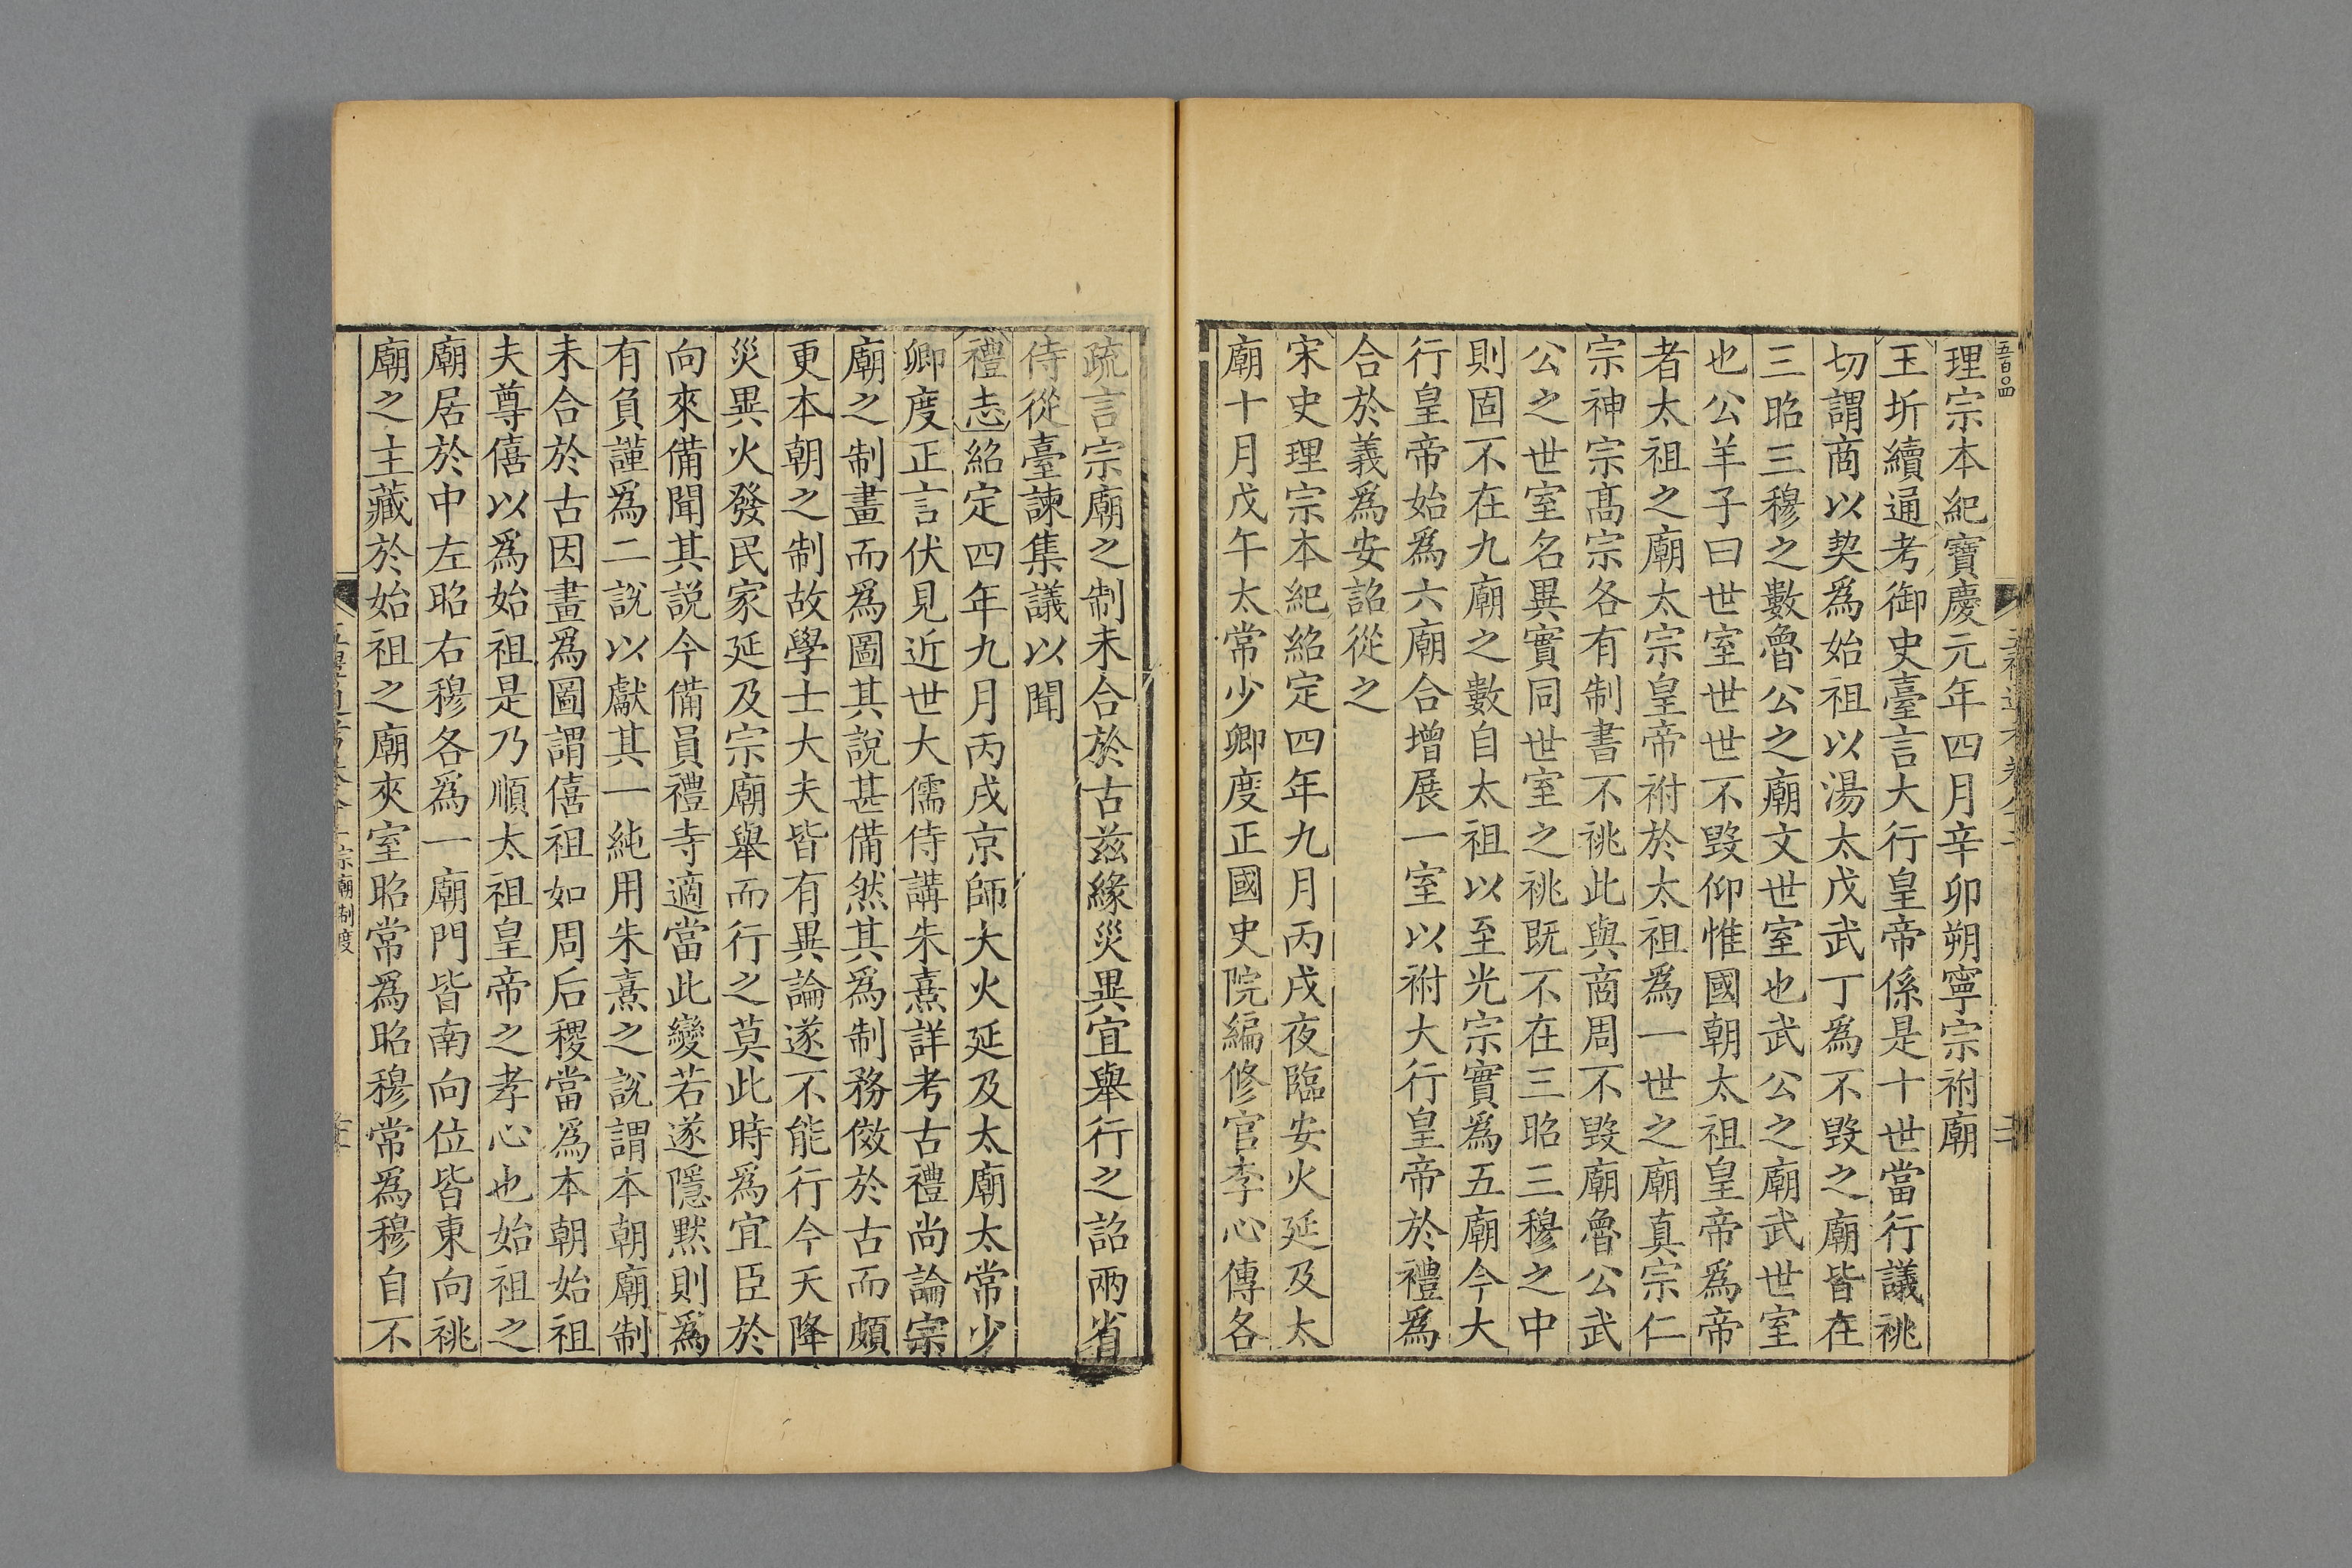 五百四
理宗本紀寶慶元年四月辛卯朔寧宗祔廟
王圻續通考御史臺言大行皇帝係是十世當行議祧
切謂商以契爲始祖以湯太戊武丁爲不毀之廟皆在
三昭三穆之數魯公之廟文世室也武公之廟武世室
也公羊子曰世室世世不毀仰惟國朝太祖皇帝爲帝
者太祖之廟太宗皇帝祔於太祖爲一世之廟真宗仁
宗神宗髙宗各有制書不祧此與商周不毀廟魯公武
公之世室名異實同世室之祧既不在三昭三穆之中
則固不在九廟之數自太祖以至光宗實爲五廟今大
行皇帝始爲六廟合增展一室以祔大行皇帝於禮爲
合於義爲安詔從之
宋史理宗本紀紹定四年九月丙戌夜臨安火延及太
廟十月戊午太常少卿度正國史院編修官李心傳各
疏言宗廟之制未合於古兹緣災異宜舉行之詔兩省
侍從臺諫集議以聞
禮志紹定四年九月丙戌京師大火延及太廟太常少
卿度正言伏見近世大儒侍講朱熹詳考古禮尚論宗
廟之制畫而爲圖其說甚備然其爲制務倣於古而頗
更本朝之制故學士大夫皆有異論遂不能行今天降
災異火發民家延及宗廟舉而行之莫此時爲宜臣於
向來備聞其説今備員禮寺適當此變若遂隱黙則爲
有負謹爲二說以獻其一純用朱熹之說謂本朝廟制
未合於古因畫爲圖謂僖祖如周后稷當爲本朝始祖
夫尊僖以爲始祖是乃順太祖皇帝之孝心也始祖之
廟居於中左昭右穆各爲一廟門皆南向位皆東向祧
廟之主藏於始祖之廟夾室昭常爲昭穆常爲穆自不
宗廟制度